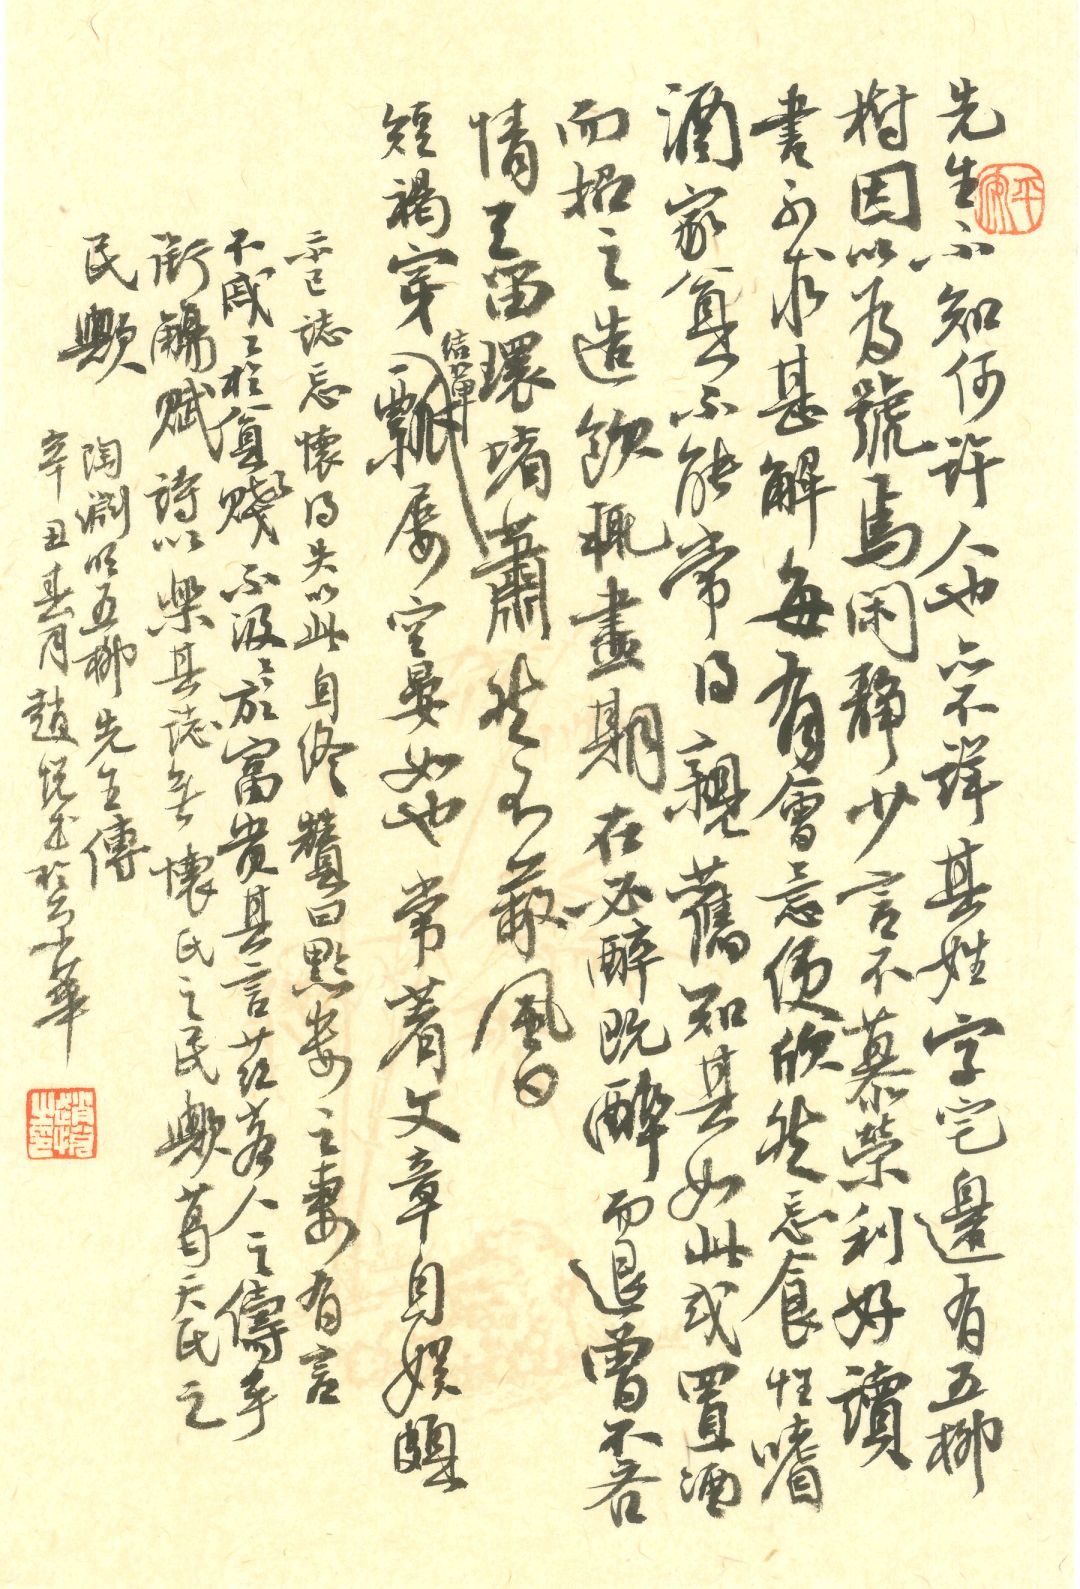 先生不知何許人也亦不詳其姓字宅邊有五柳
樹因以為號焉閑靜少言不慕榮利好讀
書不求甚解每有會意便欣然忘食性嗜
酒家貧不能常得親舊知其如此或置酒
而招之造飲輒盡期在必醉既醉而退曾不吝
情去留環堵蕭然不蔽風日
短褐穿結簞瓢屢空晏如也常著文章自娛頗
示己誌忘懷得失以此自終贊曰黔婁之妻有言
不戚戚於貧賤不汲汲於富貴其言茲若人之儔乎
銜觴賦詩以樂其誌無懷氏之民歟葛天氏之
民歟
陶淵明五柳先生傳
辛丑春月趙悅書於京華
平安